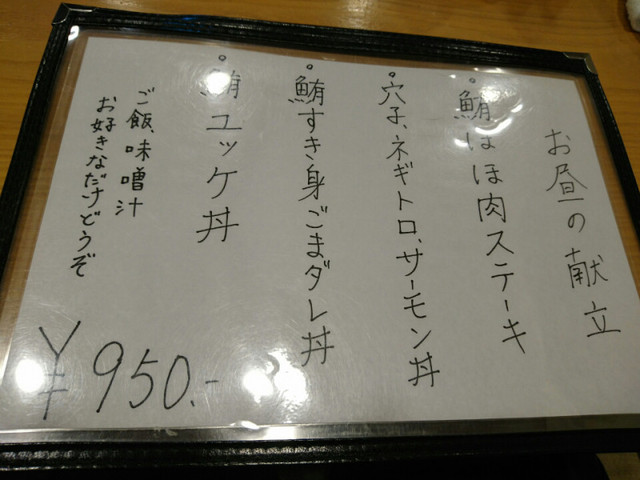 お昼の献立
鮪ほほ肉ステーキ
穴子、ネギトロ、サーモン丼
鮪すき身ごまダレ丼
鮪ユッケ丼
ご飯、味噌汁
お好きなだけどうぞ
¥950.-